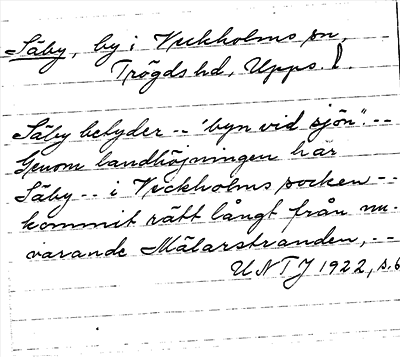 Säby, by i Veckholms sn,
Trögds hd, Upps. l.
Säby betyder -- "byn vid sjön". --
Genom landhöjningen har
Säby -- i Veckholms socken --
kommit rätt långt från nu-
varande Mälarstranden, --
UNTJ 1922, s. 6